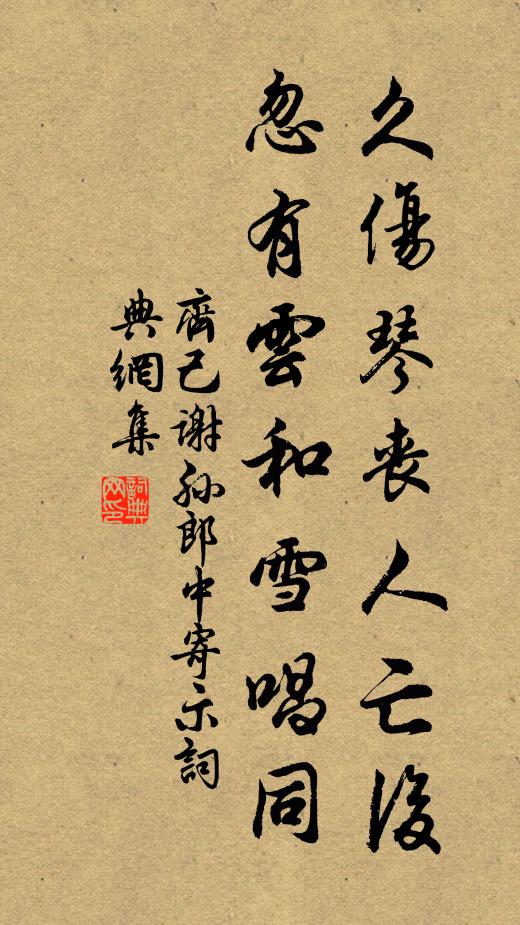 久傷琴喪人亡後
忽有雲和雪唱同
齊己謝孙郎中寄示詞
典網集
詞典
网印